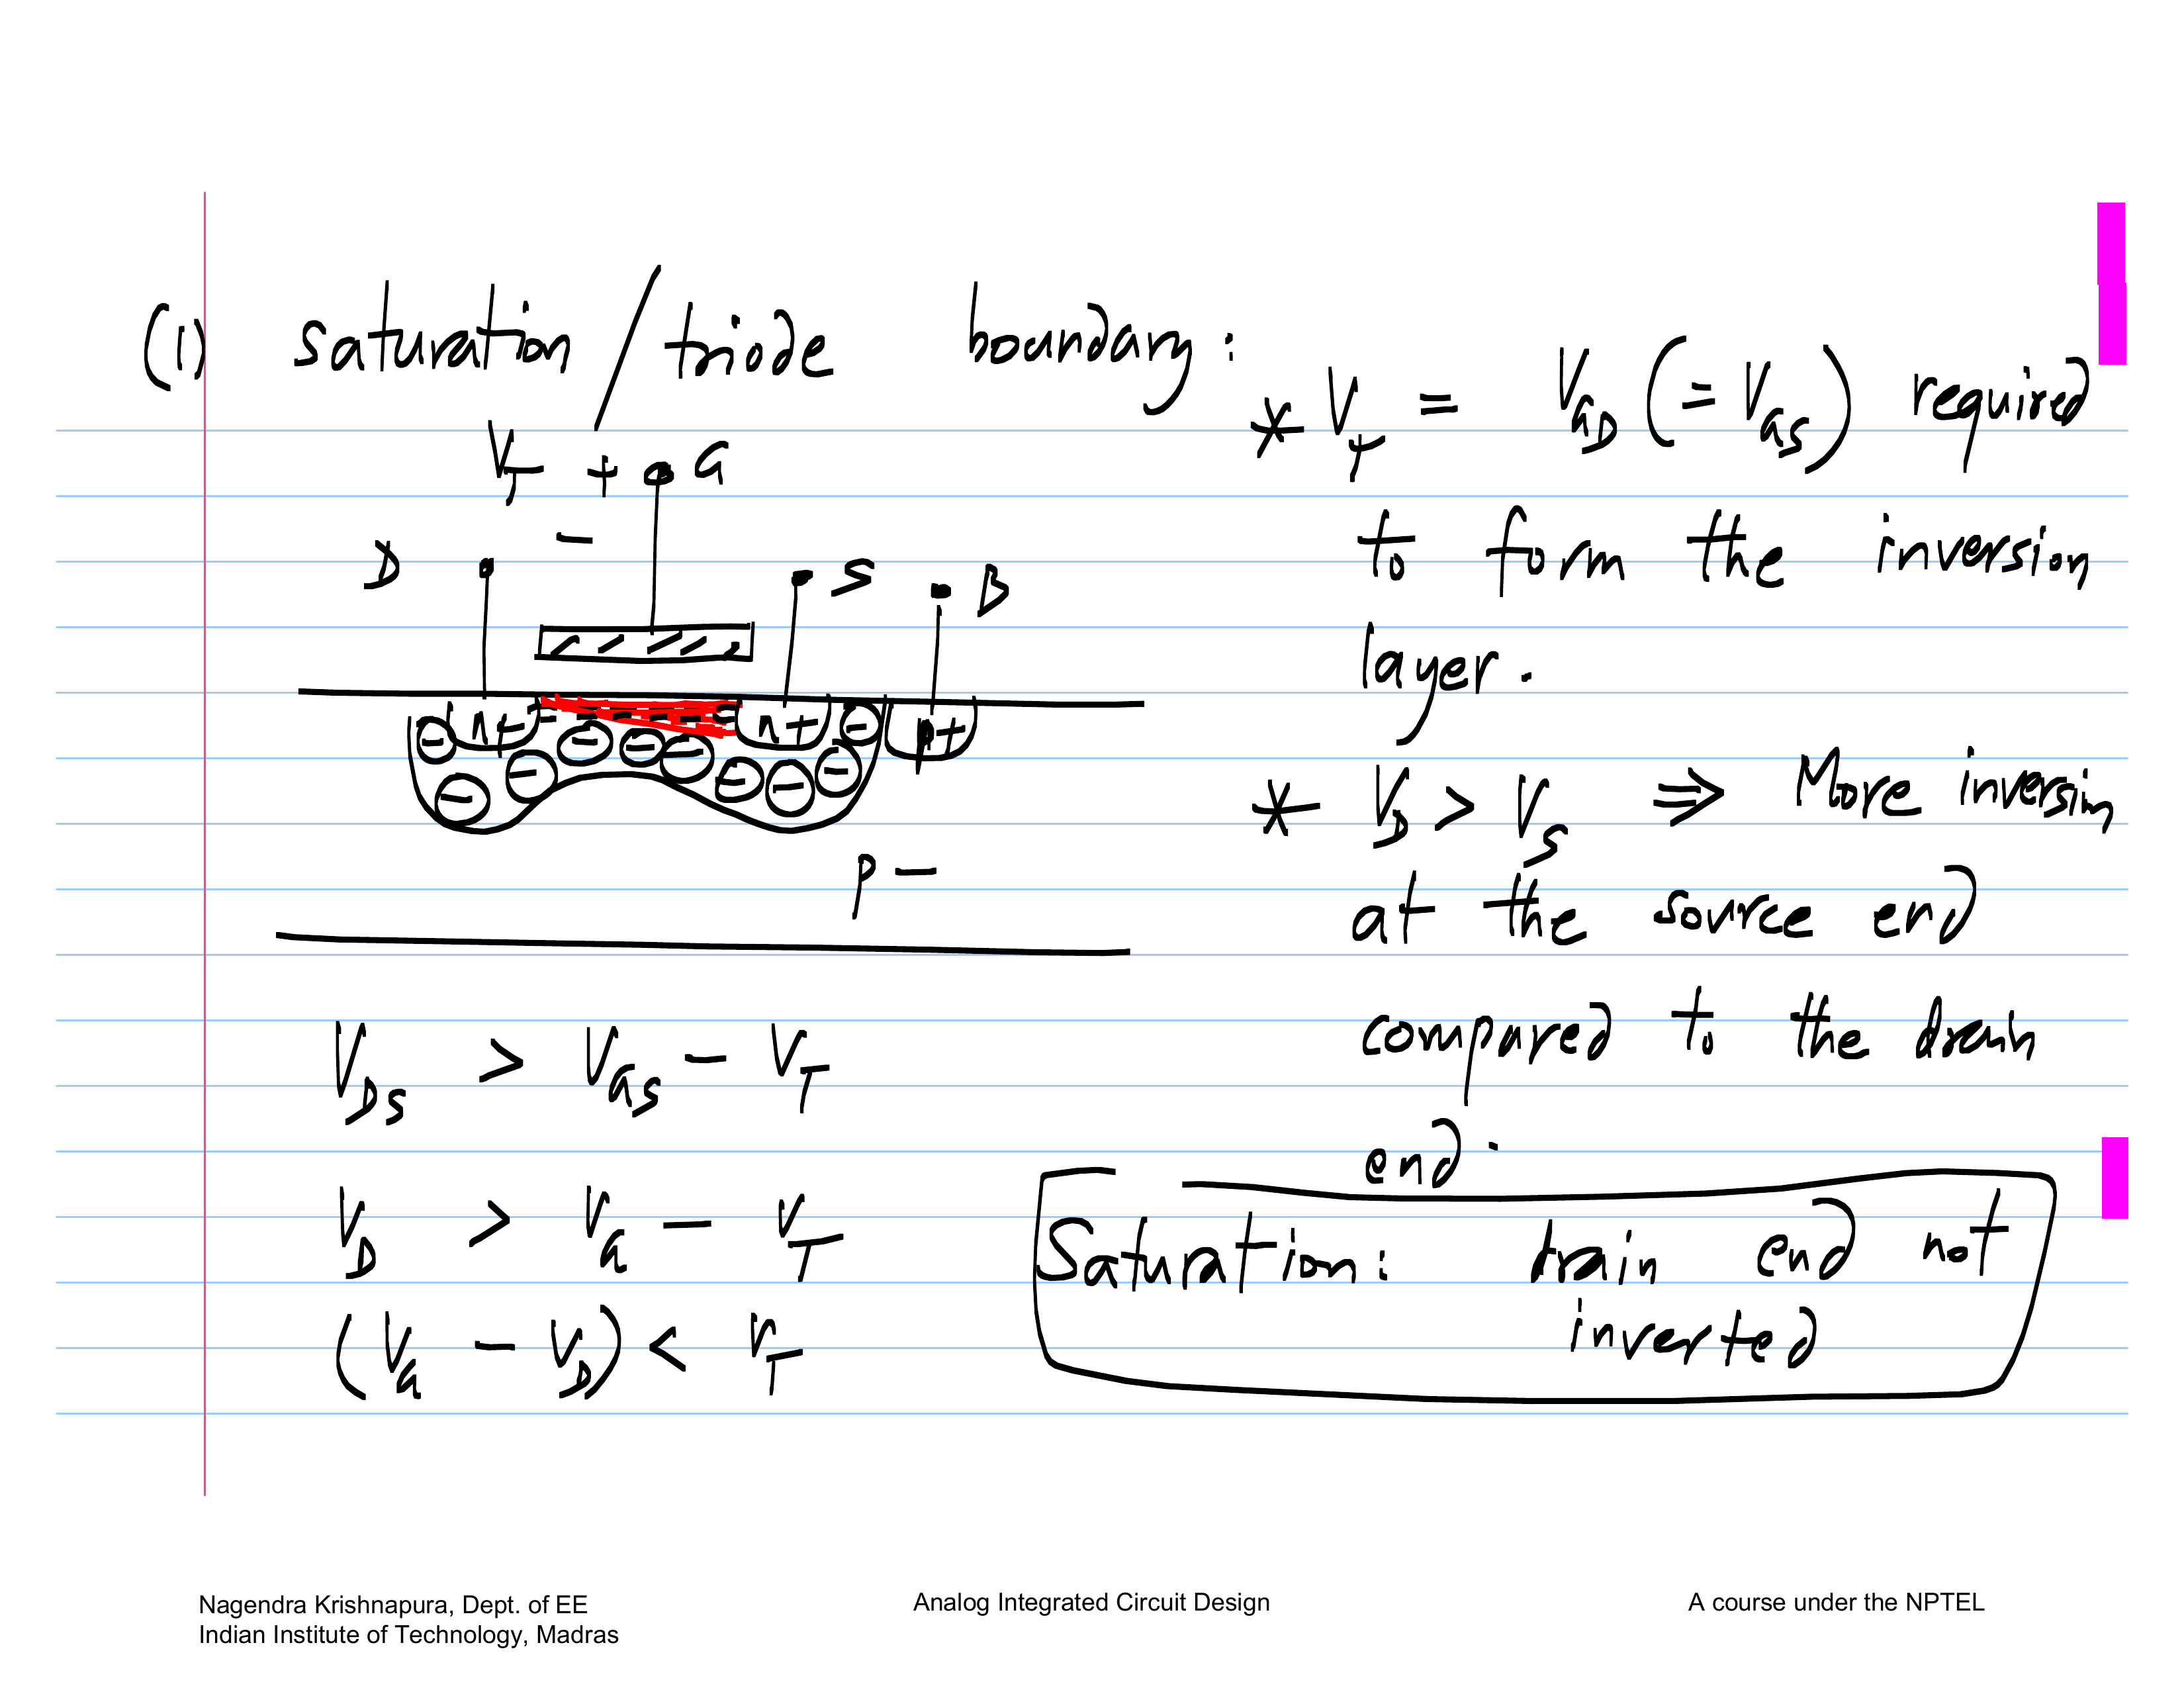 (1) saturation / triode boundary:
V_T + G
-
D S B
n+ n+ p+
p-
V_DS > V_GS - V_T
V_D > V_G - V_T
(V_G - V_D) < V_T
* V_T = V_GD (= V_GS) required
to form the inversion
layer.
* V_D > V_S ⇒ More inversion
at the source end
compared to the drain
end.
Saturation: drain end not
inverted
Nagendra Krishnapura, Dept. of EE
Indian Institute of Technology, Madras
Analog Integrated Circuit Design
A course under the NPTEL